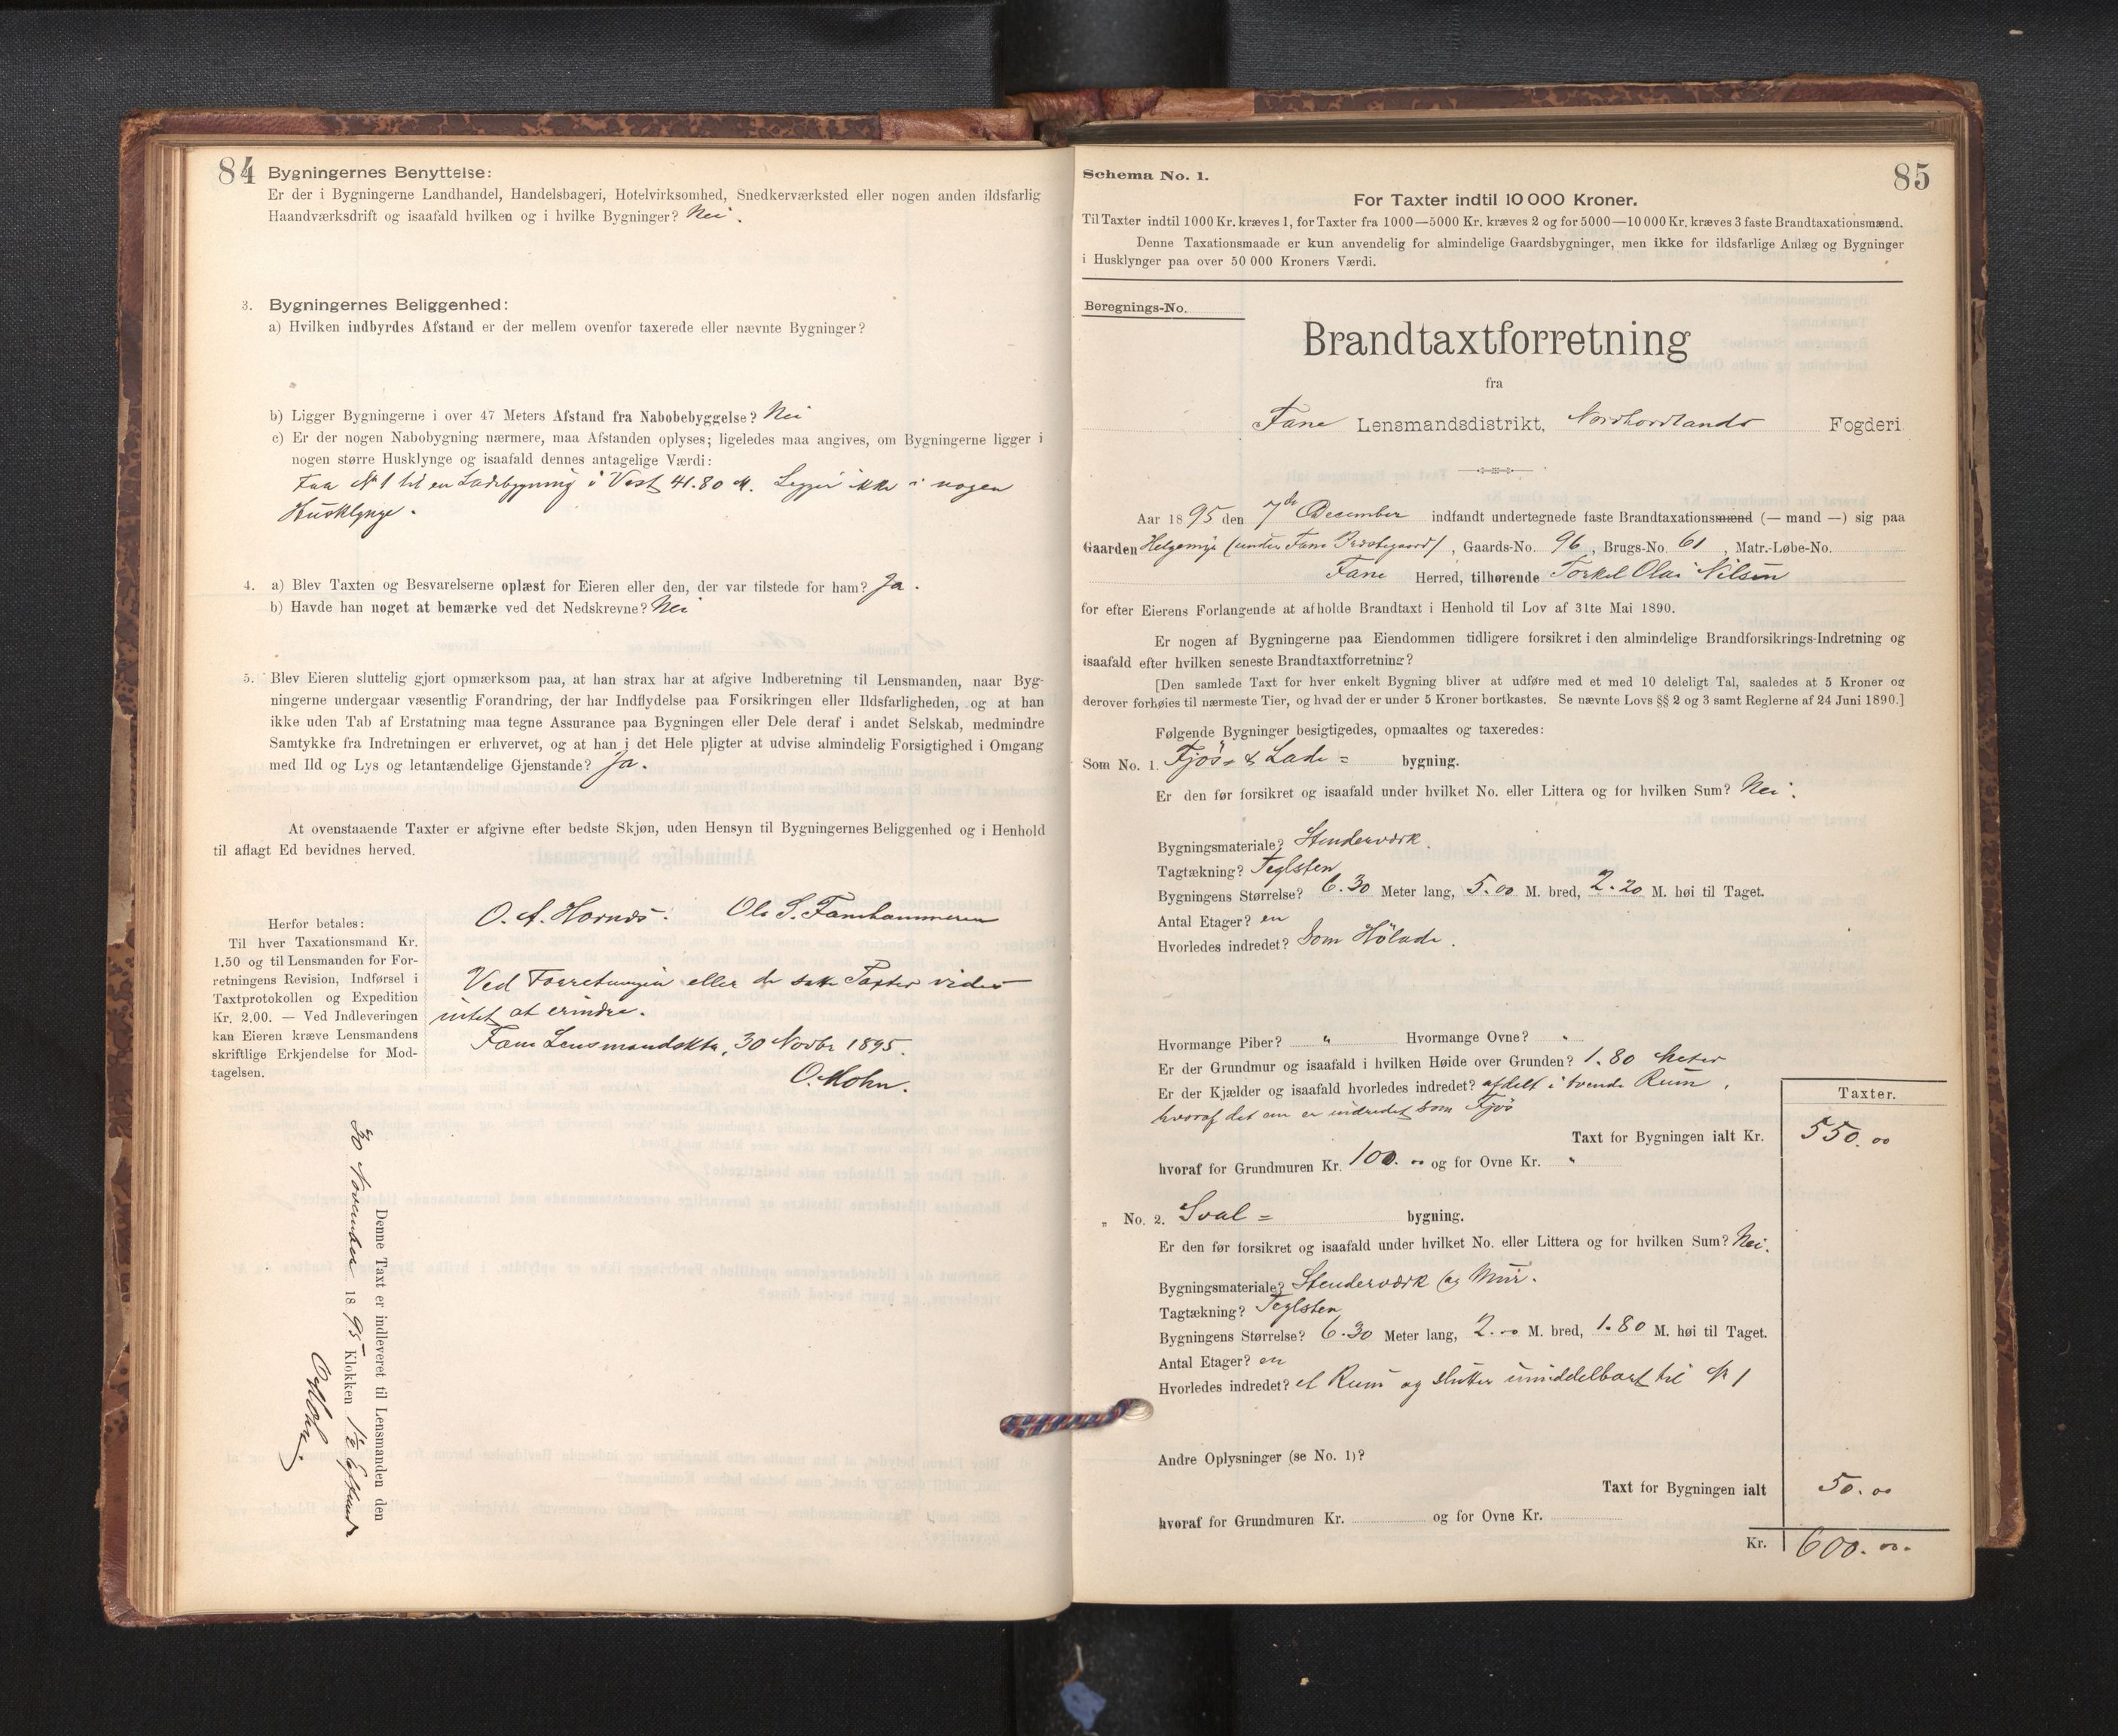 84
Bygningernes Benyttelse:
Er der i Bygningerne Landhandel, Handelsbageri, Hotelvirksomhed, Snedkerværksted eller nogen anden ildsfarlig
Haandværksdrift og isaafald hvilken og i hvilke Bygninger? Nei.
3. Bygningernes Beliggenhed:
a) Hvilken indbyrdes Afstand er der mellem ovenfor taxerede eller nævnte Bygninger?
b) Ligger Bygningerne i over 47 Meters Afstand fra Nabobebyggelse? Nei
c) Er der nogen Nabobygning nærmere, maa Afstanden oplyses; ligeledes maa angives, om Bygningerne ligger i
nogen større Husklynge og isaafald dennes antagelige Værdi:
Fra No 1 til en Ladebygning i Vest 41.80 M. Ligger ikke i nogen
Husklynge.
4. a) Blev Taxten og Besvarelserne oplæst for Eieren eller den, der var tilstede for ham? Ja.
b) Havde han noget at bemærke ved det Nedskrevne? Nei
5. Blev Eieren sluttelig gjort opmærksom paa, at han strax har at afgive Indberetning til Lensmanden, naar Byg-
ningerne undergaar væsentlig Forandring, der har Indflydelse paa Forsikringen eller Ildsfarligheden, og at han
ikke uden Tab af Erstatning maa tegne Assurance paa Bygningen eller Dele deraf i andet Selskab, medmindre
Samtykke fra Indretningen er erhvervet, og at han i det Hele pligter at udvise almindelig Forsigtighed i Omgang
med Ild og Lys og letantændelige Gjenstande? Ja.
At ovenstaaende Taxter er afgivne efter bedste Skjøn, uden Hensyn til Bygningernes Beliggenhed og i Henhold
til aflagt Ed bevidnes herved.
O. A. Hornæs. Ole S. Fanehammeren
Herfor betales:
Til hver Taxationsmand Kr.
1.50 og til Lensmanden for For-
retningens Revision, Indførsel i
Taxtprotokollen og Expedition
Kr. 2.00. — Ved Indleveringen
kan Eieren kræve Lensmandens
skriftlige Erkjendelse for Mod-
tagelsen.
Ved Forretningen eller de satte Taxter vides
intet at erindre.
Fane Lensmandsktr, 30 Novbr 1895.
O. Mohn.
Denne Taxt er indleveret til Lensmanden den
30 November 1895 Klokken 12 Efterm
O. Mohn.
85
Schema No. 1.
For Taxter indtil 10 000 Kroner.
Til Taxter indtil 1000 Kr. kræves 1, for Taxter fra 1000—5000 Kr. kræves 2 og for 5000—10 000 Kr. kræves 3 faste Brandtaxationsmænd.
Denne Taxationsmaade er kun anvendelig for almindelige Gaardsbygninger, men ikke for ildsfarlige Anlæg og Bygninger
i Husklynger paa over 50 000 Kroners Værdi.
Beregnings-No.
Brandtaxtforretning
fra
Fane Lensmandsdistrikt, Nordhordlands Fogderi
Aar 1895 den 7de December indfandt undertegnede faste Brandtaxationsmænd (— mand —) sig paa
Gaarden Helgemyr (under Fane Prestegaard), Gaards-No. 96, Brugs-No. 61, Matr.-Løbe-No.
Fane Herred, tilhørende Torkel Olai Nilsen
for efter Eierens Forlangende at afholde Brandtaxt i Henhold til Lov af 31te Mai 1890.
Er nogen af Bygningerne paa Eiendommen tidligere forsikret i den almindelige Brandforsikrings-Indretning og
isaafald efter hvilken seneste Brandtaxtforretning?
[Den samlede Taxt for hver enkelt Bygning bliver at udføre med et med 10 deleligt Tal, saaledes at 5 Kroner og
derover forhøies til nærmeste Tier, og hvad der er under 5 Kroner bortkastes. Se nævnte Lovs §§ 2 og 3 samt Reglerne af 24 Juni 1890.]
Følgende Bygninger besigtigedes, opmaaltes og taxeredes:
Som No. 1. Fjøs= & Lade= bygning.
Er den før forsikret og isaafald under hvilket No. eller Littera og for hvilken Sum? Nei.
Bygningsmateriale? Stenderværk.
Tagtækning? Teglsten
Bygningens Størrelse? 6.30 Meter lang, 5.00 M. bred, 2.20 M. høi til Taget.
Antal Etager? en
Hvorledes indredet? Som Hölade.
Hvormange Piber? " Hvormange Ovne? "
Er der Grundmur og isaafald i hvilken Høide over Grunden? 1.80 Meter
Er der Kjælder og isaafald hvorledes indredet? afdelt i tvende Rum,
hvoraf det ene er indredet som Fjøs
Taxter.
Taxt for Bygningen ialt Kr. 550.00
hvoraf for Grundmuren Kr. 100.00 og for Ovne Kr. "
" No. 2. Sval= bygning.
Er den før forsikret og isaafald under hvilket No. eller Littera og for hvilken Sum? Nei.
Bygningsmateriale? Stenderværk og Mur.
Tagtækning? Teglsten
Bygningens Størrelse? 6.30 Meter lang, 2.00 M. bred, 1.80 M. høi til Taget.
Antal Etager? en
Hvorledes indredet? et Rum og slutter umiddelbart til No 1
Andre Oplysninger (se No. 1)?
Taxt for Bygningen ialt 50.00
hvoraf for Grundmuren Kr. og for Ovne Kr.
Kr. 600.00.